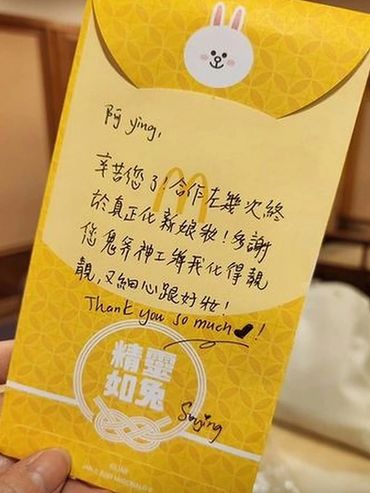 阿 ying,
辛苦您了！合作左幾次終
於真正化新娘妝！多謝
您鬼斧神工將我化得靚
靚，又細心跟好妝！
Thank you so much ♥!
精靈
如兔
Suying